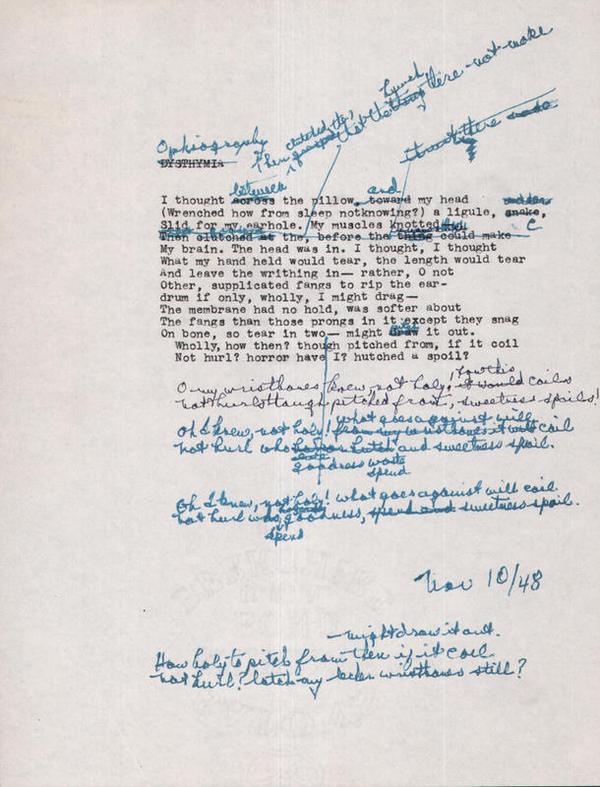 Ophiography
DYSTHYMIA
clutched the,
Then
that
there - not - make
between
and
I thought across the pillow, toward my head
(Wrenched how from sleep notknowing?) a ligule, snake,
Slid for my earhole. My muscles knotted
Then clutched at the, before the thing could make
My brain. The head was in. I thought, I thought
What my hand held would tear, the length would tear
And leave the writhing in— rather, O not
Other, supplicated fangs to rip the ear-
drum if only, wholly, I might drag—
The membrane had no hold, was softer about
The fangs than those prongs in it except they snag
On bone, so tear in two— might draw it out.
Wholly, how then? though pitched from, if it coil
Not hurl? horror have I? hutched a spoil?
O my wristbones knew, not holy, how this it would coil
not hurl though pitched from, sweetness spoils!
what goes against will
Oh I knew, not holy! from my wristbones it will coil
not hurl who and sweetness spoil.
goodness waste
spend
Oh I knew, not holy! what goes against will coil
not hurl who goodness, spend and sweetness spoil.
spend
Nov 10/48
—might draw it out.
How holy to pitch from then if it coil
not hurl? latch my wristbones still?